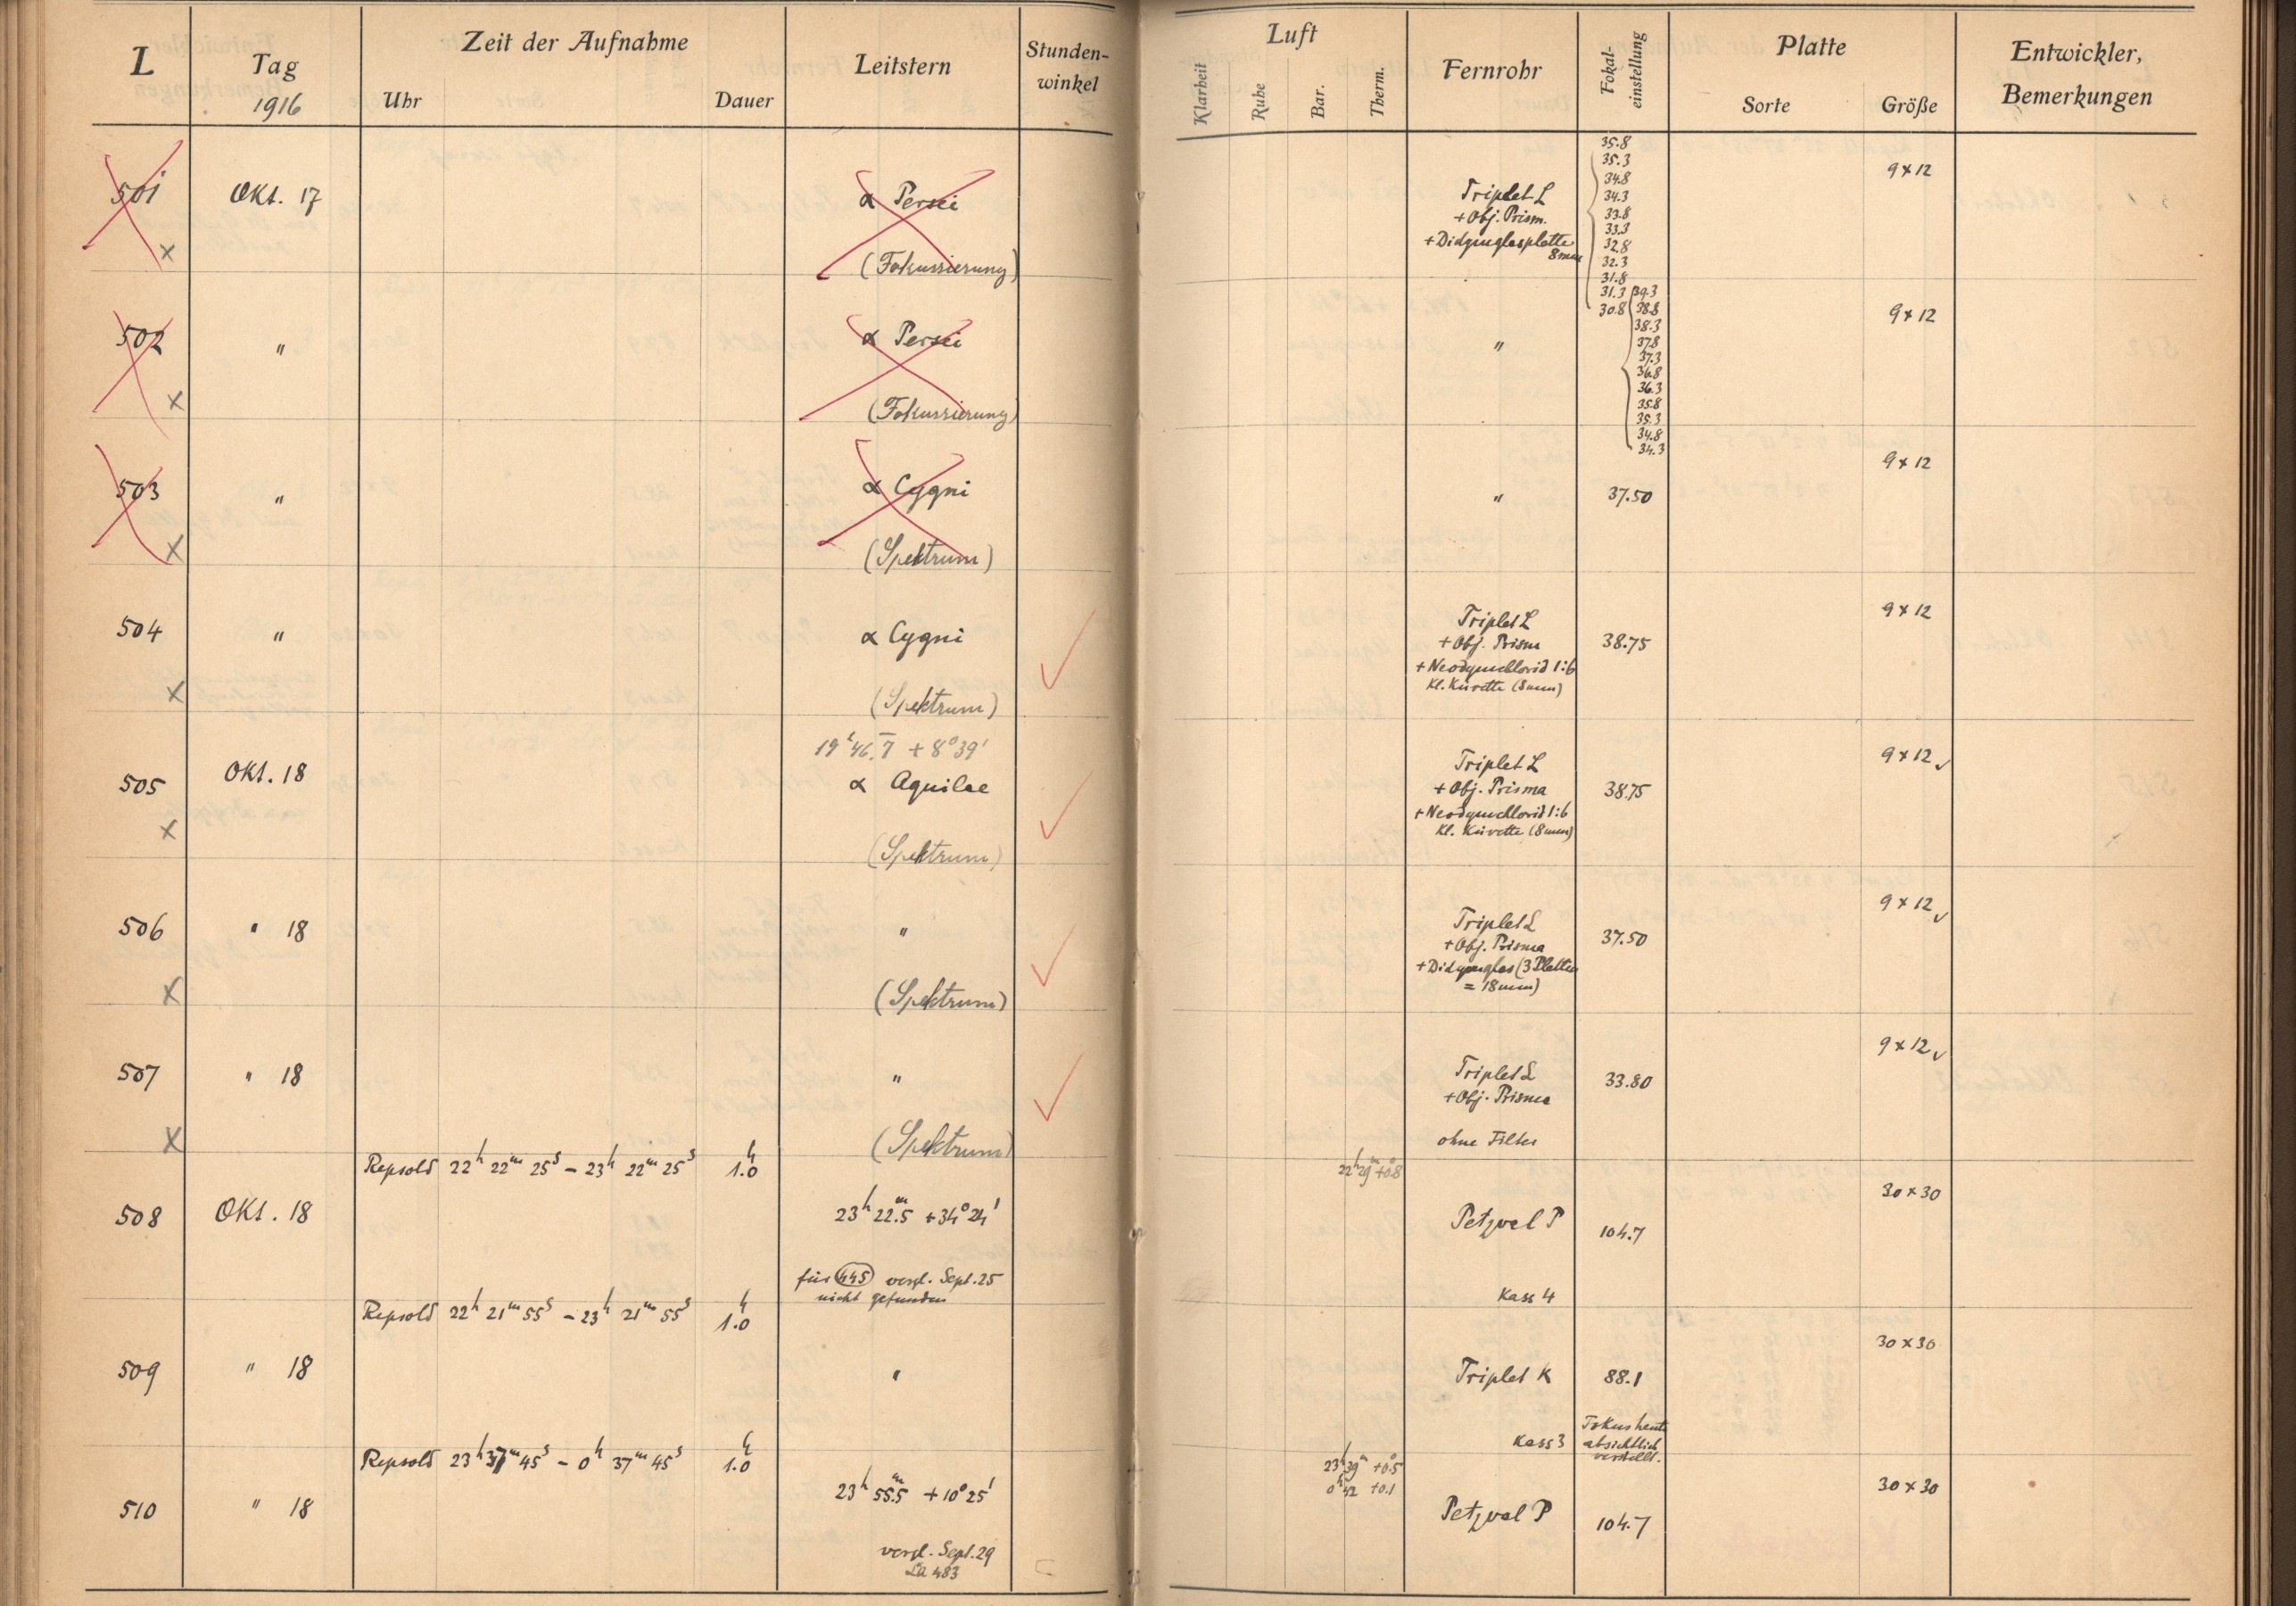 L
Tag
1916
Zeit der Aufnahme
Uhr
Dauer
Leitstern
Stunden-
winkel
Luft
Klarheit
Ruhe
Bar.
Therm.
Fernrohr
Fokal-
einstellung
Platte
Sorte
Größe
Entwickler,
Bemerkungen
501
x
Okt. 17
α Persei
(Fokussierung)
Triplet L
+ Obj. Prism.
+ Didymglasplatte
8mm
35.8
35.3
34.8
34.3
33.8
33.3
32.8
32.3
31.8
31.3
30.8
9 x 12
502
x
"
α Persei
(Fokussierung)
"
39.3
38.8
38.3
37.8
37.3
36.8
36.3
35.8
35.3
34.8
34.3
9 x 12
503
x
"
α Cygni
(Spektrum)
"
37.50
9 x 12
504
x
"
α Cygni
(Spektrum)
✓
Triplet L
+ Obj. Prisma
+ Neodymchlorid 1:6
Kl. Küvette (8mm)
38.75
9 x 12
505
x
Okt. 18
19h 46.m7 + 8° 39'
α Aquilae
(Spektrum)
✓
Triplet L
+ Obj. Prisma
+ Neodymchlorid 1:6
Kl. Küvette (8mm)
38.75
9 x 12 ✓
506
x
" 18
"
(Spektrum)
✓
Triplet L
+ Obj. Prisma
+ Didymglas (3 Platten
= 18mm)
37.50
9 x 12 ✓
507
x
" 18
"
(Spektrum)
✓
Triplet L
+ Obj. Prisma
ohne Filter
33.80
9 x 12 ✓
508
Okt. 18
Repsold 22h 22m 25s – 23h 22m 25s
1.h0
23h 22.m5 + 34° 24'
für 445 vergl. Sept. 25
nicht gefunden
22h 29m +0.°8
Petzval P
Kass 4
104.7
30 x 30
509
" 18
Repsold 22h 21m 55s – 23h 21m 55s
1.h0
"
Triplet K
Kass 3
88.1
Fokus heute
absichtlich
verstellt.
30 x 30
510
" 18
Repsold 23h 37m 45s – 0h 37m 45s
1.h0
23h 55.m5 + 10° 25'
vergl. Sept. 29
La 483
23h 39m +0.°5
0h 42 +0.1
Petzval P
104.7
30 x 30